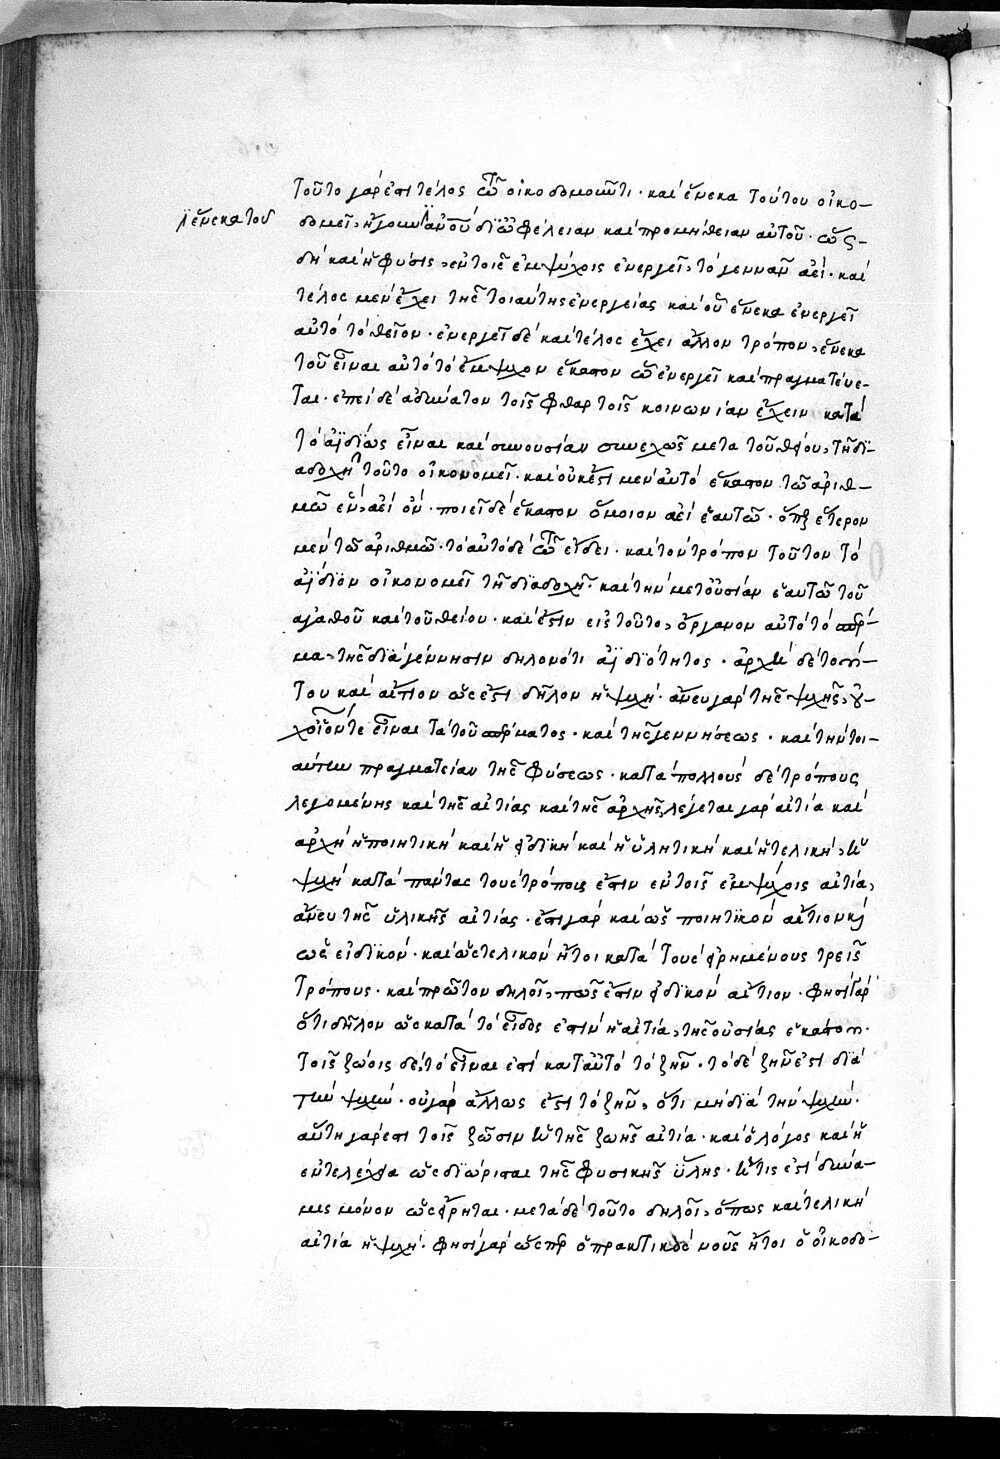 τοῦτο γάρ ἐστι τέλος τῶ οἰκοδομοῦντι· καὶ ἕνεκα τούτου οἰκο-
ἢ ἕνεκα τοῦ
δομεῖ, ἤγουν αὐτοῦ δι' ὠφέλειαν καὶ προμήθειαν αὐτοῦ· ὡς
δὴ καὶ ἡ φύσις, ἐν τοῖς ἐμψύχοις ἐνεργεῖ, τὸ γεννᾶν ἀεί· καὶ
τέλος μὲν ἔχει τῆς τοιαύτης ἐνεργείας καὶ οὗ ἕνεκα ἐνεργεῖ
αὐτὸ τὸ θεῖον· ἐνεργεῖ δὲ καὶ τέλος ἔχει ἄλλον τρόπον, ἕνεκα
τοῦ εἶναι αὐτὸ τὸ ἔμψυχον ἕκαστον ὧ ἐνεργεῖ καὶ πραγματεύε-
ται· ἐπεὶ δὲ ἀδύνατον τοῖς φθαρτοῖς κοινωνίαν ἔχειν κατὰ
τὸ ἀϊδίως εἶναι καὶ συνουσίαν συνεχῶς μετὰ τοῦ θείου, τῆ δι-
αδοχῆ τοῦτο οἰκονομεῖ· καὶ οὐκ ἔστι μὲν αὐτὸ ἕκαστον τῶ ἀριθ-
μῶ ἓν, ἀεὶ ὄν· ποιεῖ δὲ ἕκαστον ὅμοιον ἀεὶ ἑαυτῶ· ὅπερ ἕτερον
μὲν τῶ ἀριθμῶ· τὸ αὐτὸ δὲ τῶ εἴδει· καὶ τὸν τρόπον τοῦτον τὸ
ἀΐδιον οἰκονομεῖ τῆ διαδοχῆ· καὶ τὴν μετουσίαν ἑαυτῶ τοῦ
ἀγαθοῦ καὶ τοῦ θείου· καὶ ἔστιν εἰς τοῦτο, ὄργανον αὐτὸ τὸ σπέρ-
μα, τῆς διὰ γέννησιν δηλονότι ἀϊδιότητος· ἀρχὴ δὲ τού-
του καὶ αἴτιον ὡς ἔστι δῆλον ἡ ψυχή· ἄνευ γὰρ τῆς ψυχῆς, οὐ-
χ οἷόν τε εἶναι τὰ τοῦ σπέρματος· καὶ τῆς γεννήσεως· καὶ τὴν τοι-
αύτην πραγματείαν τῆς φύσεως· κατὰ πολλοὺς δὲ τρόπους
λεγομένης καὶ τῆς αἰτίας καὶ τῆς ἀρχῆς, λέγεται γὰρ αἰτία καὶ
ἀρχὴ ἡ ποιητικὴ καὶ ἡ εἰδικὴ καὶ ἡ ὑλητικὴ καὶ ἡ τελική, ἡ
ψυχὴ κατὰ πάντας τοὺς τρόπους ἔστιν ἐν τοῖς ἐμψύχοις αἰτία,
ἄνευ τῆς ὑλικῆς αἰτίας· ἔστι γὰρ καὶ ὡς ποιητικὸν αἴτιον κὶ
ὡς εἰδικόν· καὶ ὡς τελικὸν ἤτοι κατὰ τοὺς εἰρημένους τρεῖς
τρόπους· καὶ πρῶτον δηλοῖ, πῶς ἔστιν εἰδικὸν αἴτιον· φησὶ γὰρ
ὅτι δῆλον ὡς κατὰ τὸ εἶδος ἐστὶν ἡ αἰτία, τῆς οὐσίας ἑκάστου·
τοῖς ζώοις δέ, τὸ εἶναι ἐστὶ κατ' αὐτὸ τὸ ζῆν· τὸ δὲ ζῆν ἐστὶ διὰ
τὴν ψυχήν· οὐ γὰρ ἄλλως ἔστι τὸ ζῆν, ὅτι μὴ διὰ τὴν ψυχήν·
αὕτη γάρ ἐστι τοῖς ζῶσιν ἡ τῆς ζωῆς αἰτία· καὶ ὁ λόγος καὶ ἡ
ἐντελέχεια ὡς διώρισται τῆς φυσικῆς ὕλης· ἥτις ἐστὶ δυνά-
μις μόνον ὡς εἴρηται· μετὰ δὲ τοῦτο δηλοῖ, ὅπως καὶ τελικὴ
αἰτία ἡ ψυχή· φησὶ γὰρ ὥσπερ ὁ πρακτικὸς νοῦς ἤτοι ὁ οἰκοδο-